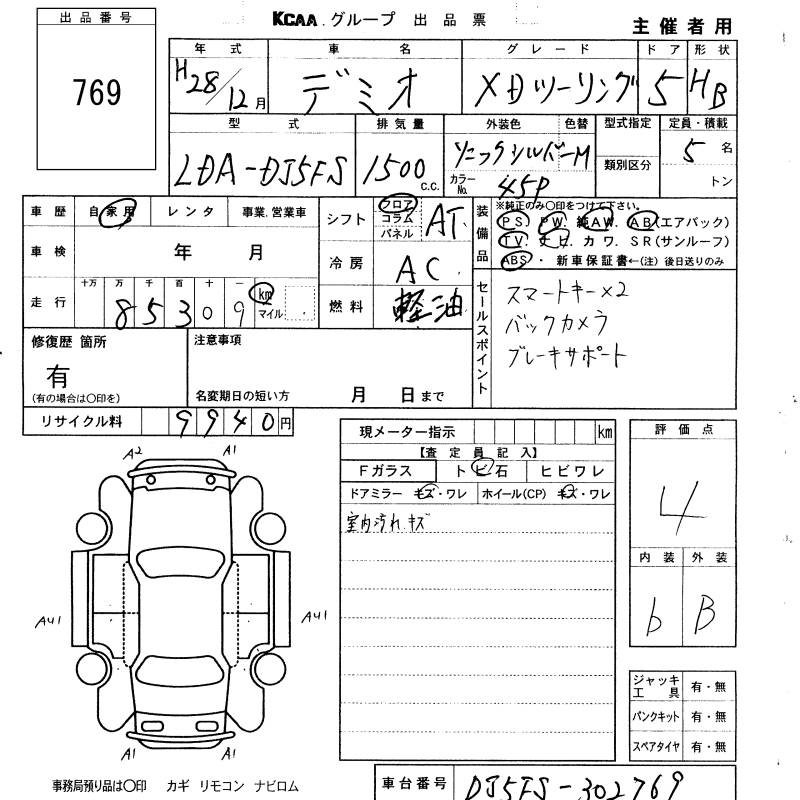 KCAA グループ 出品票
主催者用
出品番号
769
年式 車名 グレード ドア 形状
H28/12月 デミオ XDツーリング 5 HB
型式 排気量 外装色 色替 型式指定 定員・積載
LDA-DJ5FS 1500 C.C. ソニックシルバーM 5名
カラーNo. 45P 類別区分 トン
車歴 自家用 レンタ 事業、営業車
シフト フロア コラム パネル AT
装備品 ※純正のみ〇印をつけて下さい。
PS. PW. 純AW. AB(エアバック)
TV. ナビ. カワ. SR(サンルーフ)
ABS・新車保証書←(注)後日送りのみ
車検 年 月
冷房 AC
走行 十万 万 千 百 十 一
85309 km マイル
燃料 軽油
セールスポイント
スマートキー×2
バックカメラ
ブレーキサポート
修復歴 箇所
有
(有の場合は〇印を)
注意事項
名変期日の短い方 月 日まで
リサイクル料 9940円
現メーター指示 km
【査定員記入】
Fガラス トビ石 ヒビワレ
ドアミラー キズ・ワレ ホイール(CP) キズ・ワレ
室内汚れ キズ
評価点
4
内装 外装
b B
A2 A1
AU1 AU1
A1 A1
ジャッキ工具 有・無
パンクキット 有・無
スペアタイヤ 有・無
事務局預り品は〇印 カギ リモコン ナビロム
車台番号 DJ5FS-302769